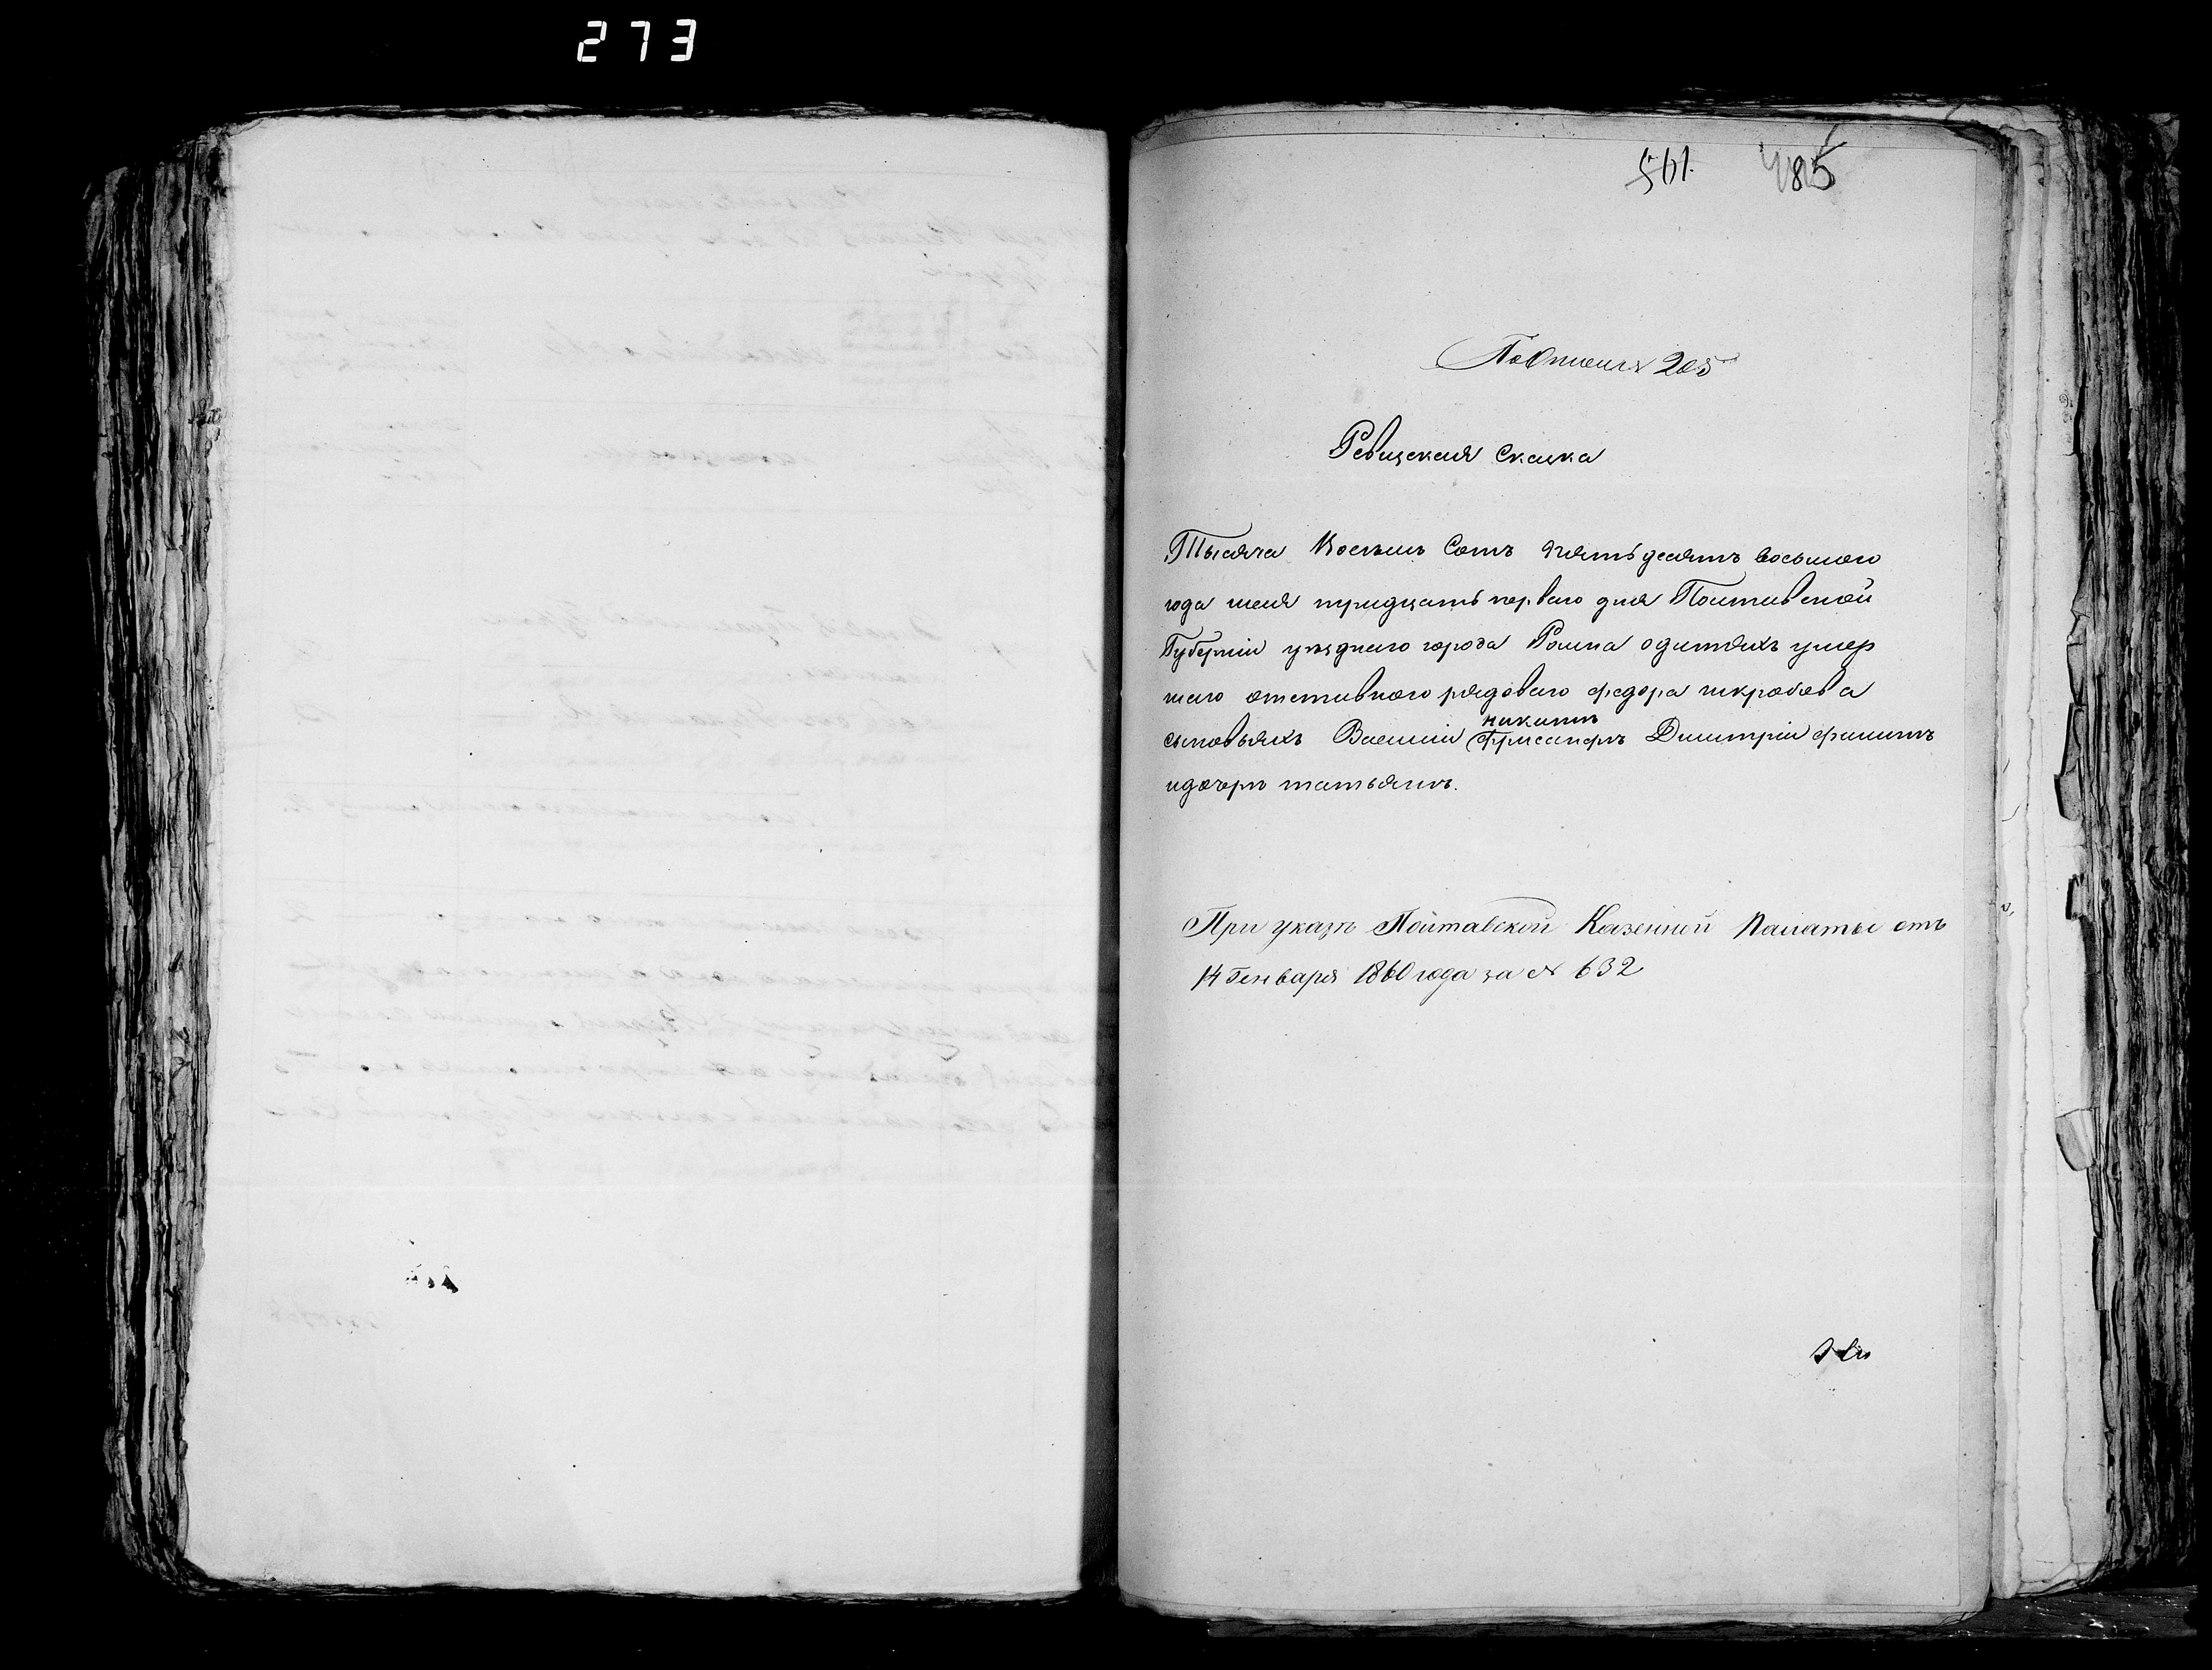 273
561. 485
По Описи 205
Ревизская сказка
Тысяча Восемь Сотъ пятьдесятъ восьмого
года мая тридцать перваго дня Полтавской
Губерніи уѣзднаго города Ромна одитяхъ умер
шаго отставного рядоваго федора шкробова
никитѣ
сыновьяхъ Василіи Димитріи филипѣ
идочерѣ татьянѣ.
При указѣ Полтавской Казенной Палаты отъ
14 Генваря 1860 года за № 632